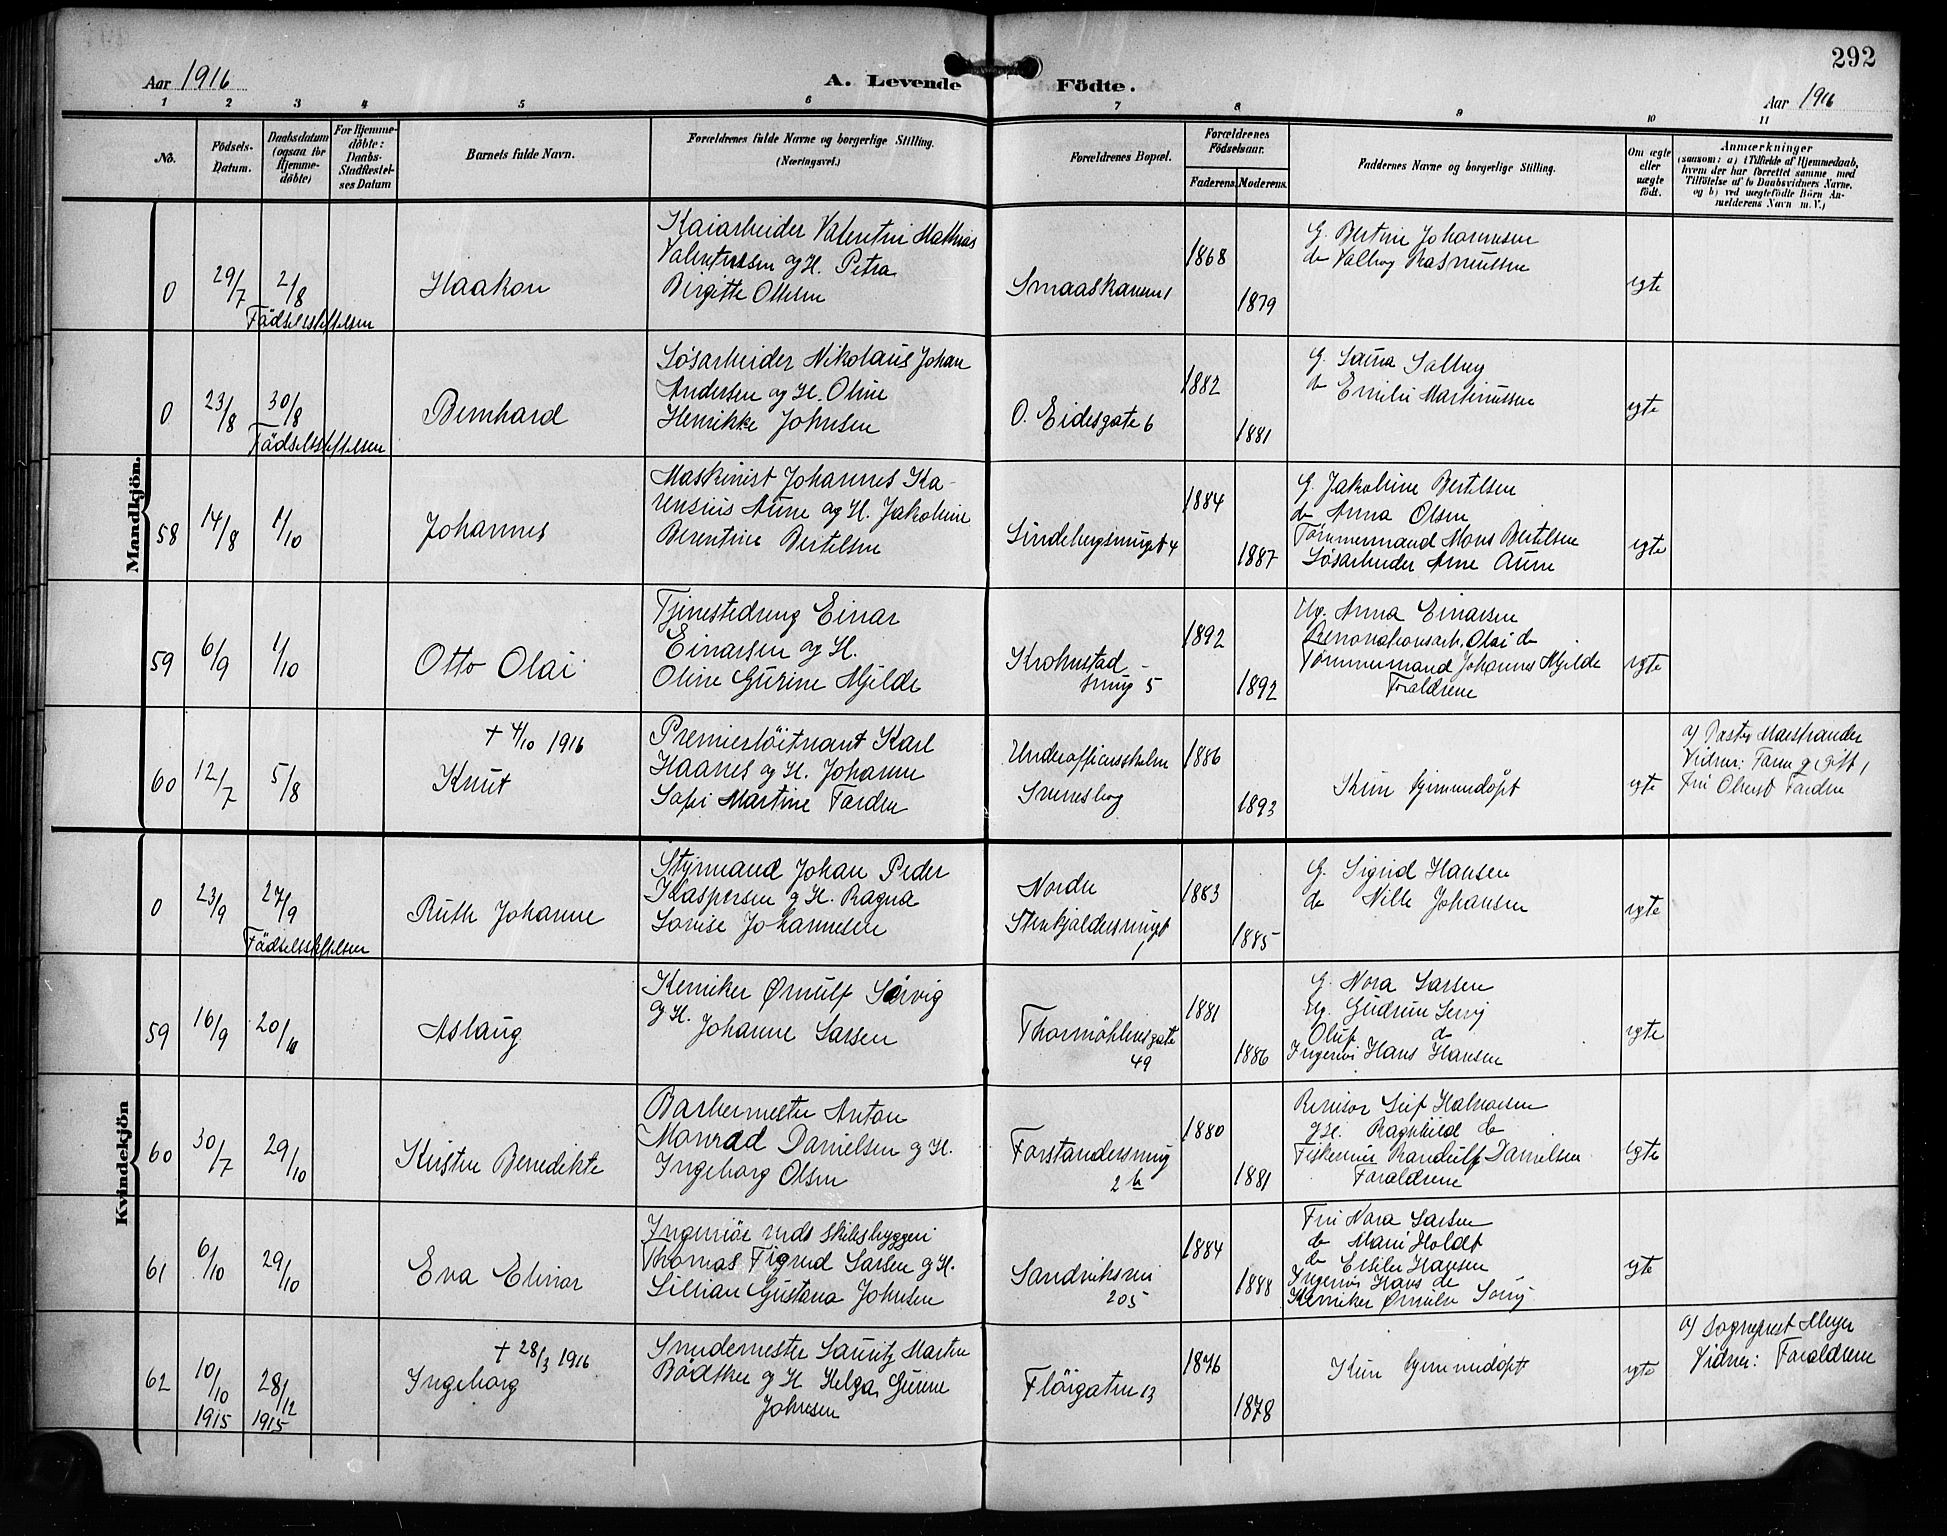 292
Aar 1916
A. Levende Födte.
Aar 1916
1 2 3 4 5 6 7 8 9 10 11
No.
Födsels-
Datum.
Daabsdatum
(ogsaa for
Hjemme-
döbte)
For Hjemme-
döbte:
Daabs-
Stadfæstel-
ses Datum
Barnets fulde Navn.
Forældrenes fulde Navne og borgerlige Stilling.
(Næringsvei.)
Forældrenes Bopæl.
Forældrenes
Födselsaar.
Faderens. Moderens.
Faddernes Navne og borgerlige Stilling.
Om ægte
eller
uægte
födt.
Anmærkninger
(saasom: a) i Tilfælde af Hjemmedaab,
hvem der har forrettet samme med
Tilföielse af to Daabsvidners Navne.
og b) ved uægtefödte Börn An-
melderens Navn m. V.)
Mandkjön.
0
29/7
2/8
Fødselsstiftelsen
Haakon
Kaiarbeider Valentin Mathias
Valentinsen og H. Petra
Birgitte Ottesen
1868
1879
G. Bertine Johannesen
do Valborg Rasmussen
ægte
0
23/8
30/8
Fødselsstiftelsen
Bernhard
Løsarbeider Nikolaus Johan
Andersen og H. Oline
Henrikke Johnsen
O. Eidesgate 6
1882
1881
G. Laura Solberg
do Emilie Martinussen
ægte
58
14/8
1/10
Johannes
Maskinist Johannes Ka-
rensius Aune og H. Jakobine
Berentine Bertelsen
Lindebergsmuget 4
1884
1887
G. Jakobine Bertelsen
do Anna Olsen
Tømmermand Mons Bertelsen
Løsarbeider Arne Aune
ægte
59
6/9
1/10
Otto Olai
Tjenestedreng Einar
Einarsen og H.
Oline Gurine Mjelde
Krohnstad
smug 5
1892
1892
Ug. Anna Einarsen
Renovationsarb. Olai do
Tømmermand Johannes Mjelde
Forældrene
ægte
60
12/7
5/8
+ 4/10 1916
Knut
Premierløitnant Karl
Haanes og H. Johanne
Sofie Martine Farden
Underofficersskolen
Sverresborg
1886
1893
Kun hjemmedøpt
ægte
a) Marstrander
Vidner: Farm. g. gift,
Fru Oberst Farden
Kvindekjön
0
23/9
27/9
Fødselsstiftelsen
Ruth Johanne
Styrmand Johan Peder
Kaspersen og H. Ragna
Lovise Johannesen
Nordre
Stenkjeldersmuget
1
1883
1885
G. Sigrid Hansen
do Nille Johansen
ægte
59
16/9
20/10
Aslaug
Kemiker Ørnulf Sørvig
og H. Johanne Larsen
Thormøhlensgate
49
1881
1886
G. Nora Larsen
Ug. Gudrun
Oluf do
Ingeniør Hans Hansen
ægte
60
30/7
29/10
Kirsten Benedikte
Barbermester Anton
Monrad Danielsen og H.
Ingeborg Olsen
Forstandersmug
2 b
1880
1881
Revisor Leif Halvorsen
g H. Ragnhild do
Randulf Danielsen
Forældrene
ægte
61
6/10
29/10
Eva Elinor
Ingeniør ved skibsbyggeri
Thomas Sigurd Larsen og H.
Lillian Gustava Johnsen
Sandviksvei
205
1884
1888
Fru Nora Larsen
do Marie Holdt
do Hansen
Ingeniør Hans do
Kemiker Ørnulf
ægte
62
10/10
1915
28/12
1915
+ 28/3 1916
Ingeborg
Smedemester Lauritz Martin
Bødtker og H. Helga Gunne
Johnsen
Fløigaten 13
1876
1878
Kun hjemmedøpt
ægte
a) Sognepræst Meyer
Vidner: Forældrene